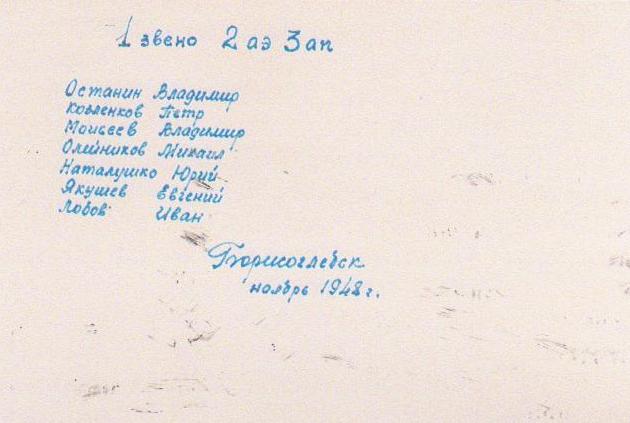 1 звено 2 аэ 3 ап
Останин Владимир
Козленков Петр
Моисеев Владимир
Олейников Михаил
Наталушко Юрий
Якушев Евгений
Лобов Иван
Борисоглебск
ноябрь 1948 г.